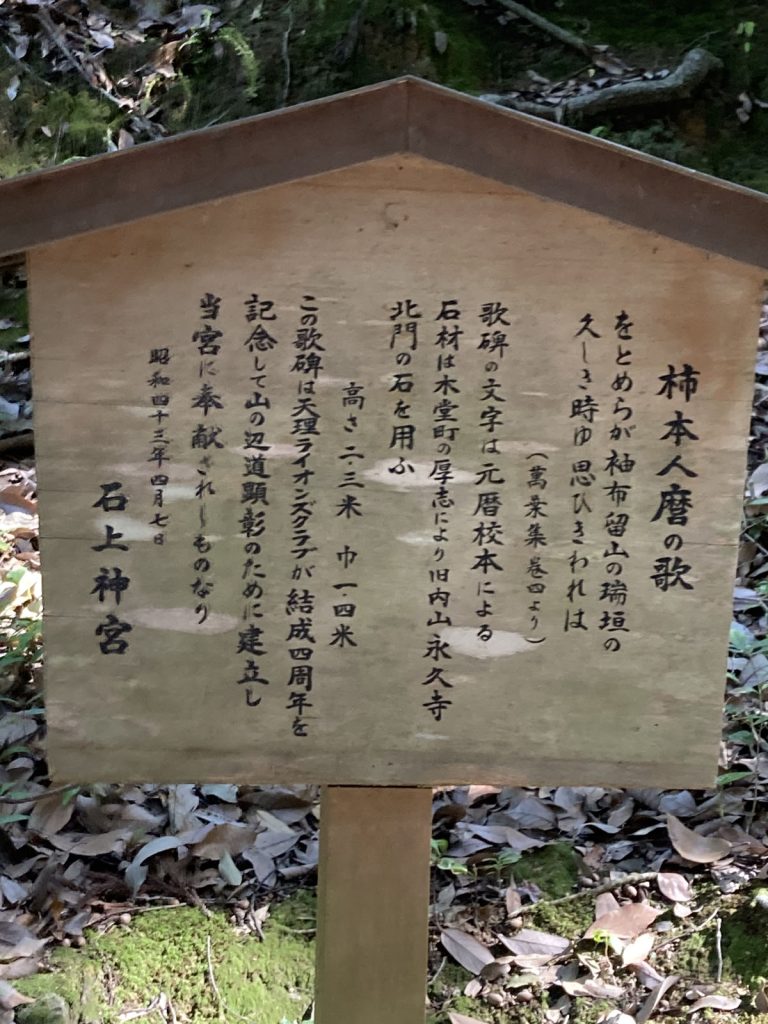 柿本人麿の歌
をとめらが袖布留山の瑞垣の
久しき時ゆ思ひきわれは
(萬葉集巻四より)
歌碑の文字は元暦校本による
石材は木堂町の厚志により旧内山永久寺
北門の石を用ふ
高さ二・三米 巾一・四米
この歌碑は天理ライオンズクラブが結成四周年を
記念して山の辺道顕彰のために建立し
当宮に奉献されしものなり
昭和四十三年四月七日
石上神宮